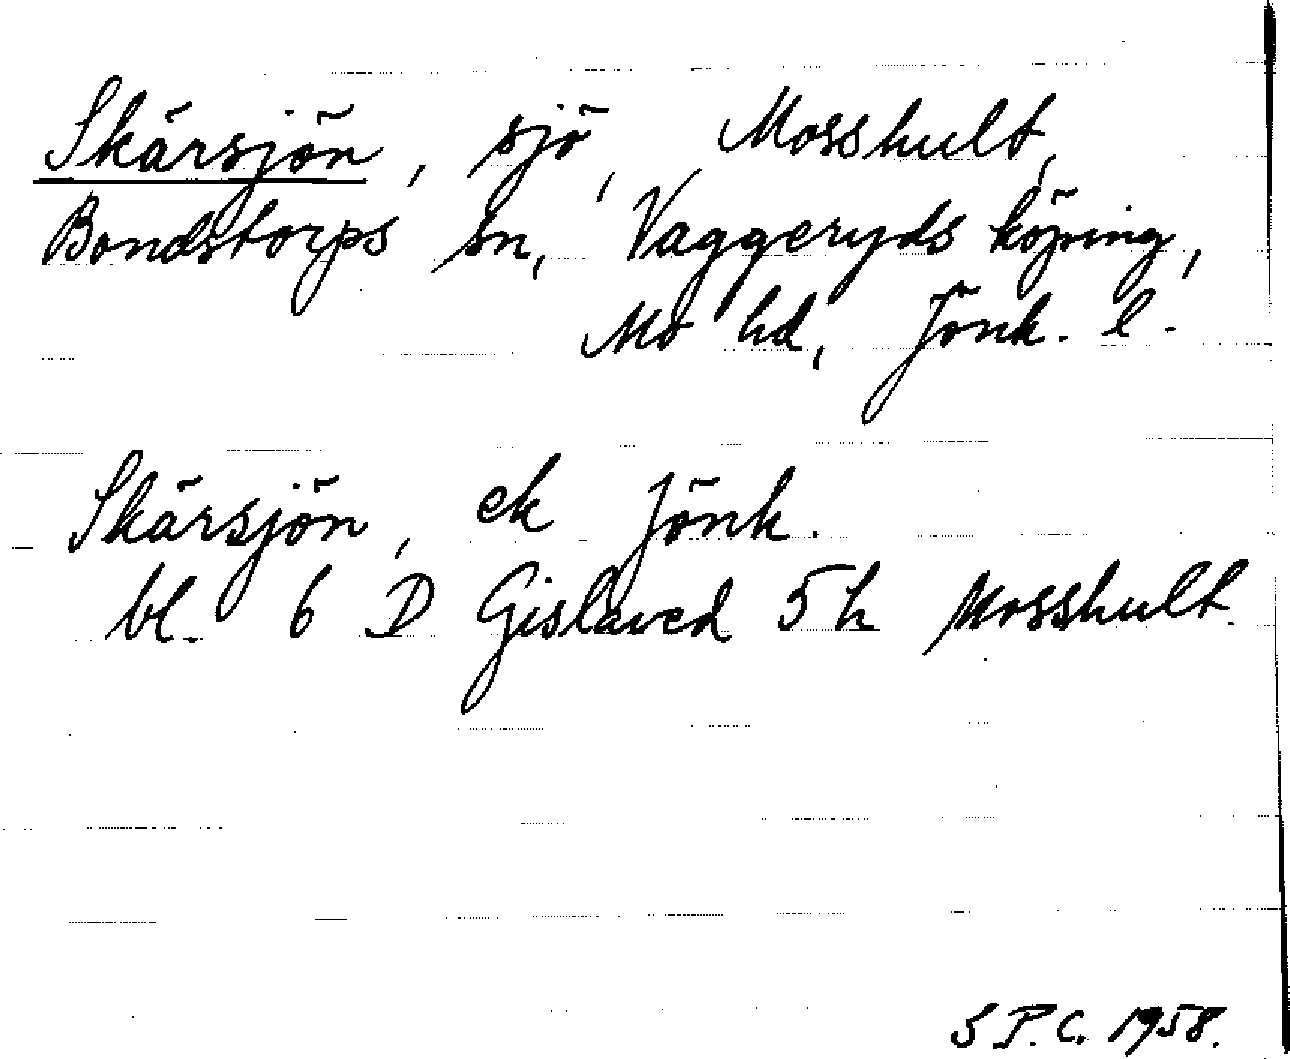 Skärsjön, sjö, Mosshult,
Bondstorps sn, Vaggeryds köping,
Mo hd, Jönk. l.
Skärsjön, ek Jönk.
bl. 6 D Gislaved 5 h Mosshult.
S P. C. 1958.